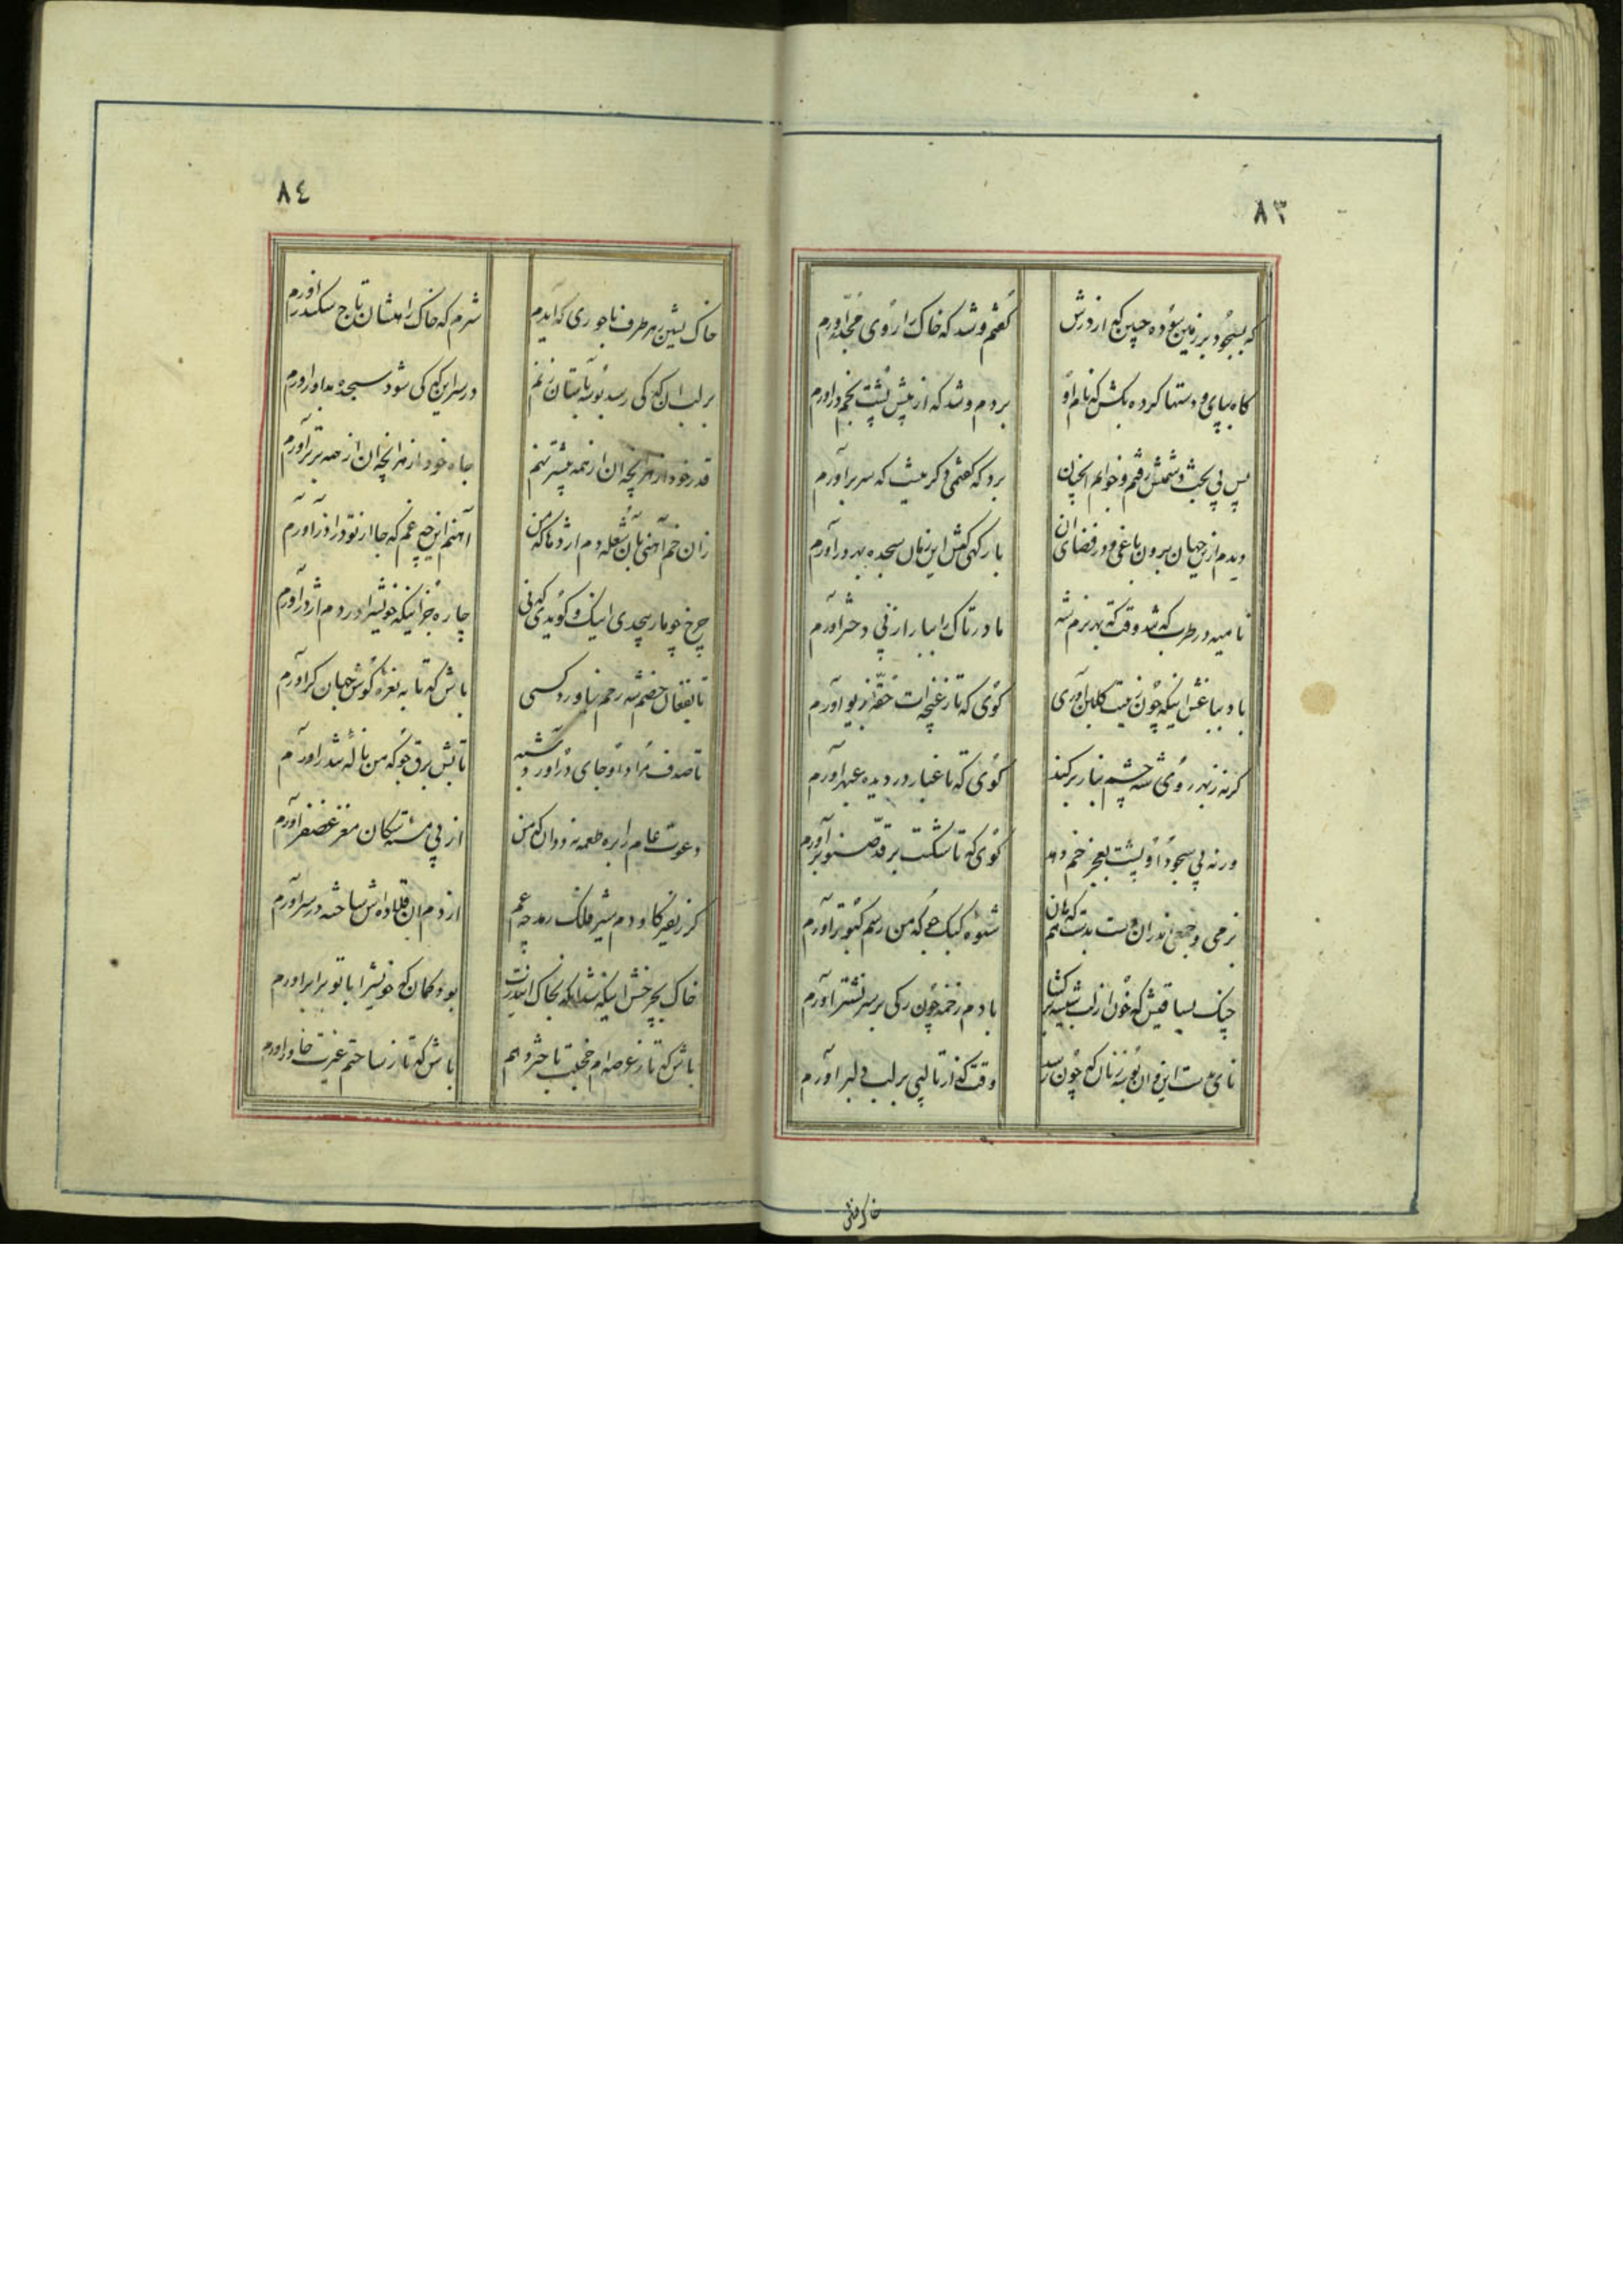 ٨٣
که بسجود بر زمین سوده جبین که از درش
گفتم و شد که خاک را روی مجدّر آورم
گاه بپای و دستها کرده بکش که نام او
بردم و شد که از منش پشت بخم در آورم
پس پی بحث دشمنش رفتم و خواهم
برد که گفتمی دگر نیست که سر برآورم
دیدم ازین جهان برون باغی و در فضای آن
بارگهی کش این زمان سجده بهر در آورم
نامیه در طرب که شد وقت که بهر بزم شه
مادر تاک را ببار از پی دختر آورم
باد بباغش اینکه چون نیست گلبن آوری
گوی که تا ز غنچه‌ات حقه زیور آورم
گر نه زبهر روی شه چشم بناز برکند
گوی که تا غبار در دیده عبهر آورم
ورنه پی سجود او پشت بعجز خم دهد
گوی که تا شکست بر قدّ صنوبر آورم
بزمی و جمعی اندران مست بدست هم که هان
شیوه کبک هی که من رسم کبوتر آورم
چنگ بساقیش که خون از لب شیشه برگشا
با دم زخمه چون رگی بر سر نشتر آورم
نای بدست این و آن بوسه زنان که چون رسد
وقت که از تو لبی بر لب دلبر آورم
خاک نشین
٨٤
خاک نشین بهر طرف تاجوری که آیدم
شرم که خاک راهشان تاج سکندر آورم
بر لب آن که کی رسد بوسه بآستان زنم
در سر این که کی شود سجده بداور آورم
قدر خود از هر آنچه آن از همه پیشتر نهم
جاه خود از هر آنچه آن از همه برتر آورم
زان خم آهنی بآن شعله دم اژدها که من
آهنم این چه غم که جا از تو در آذر آورم
چرخ چو مار پیچدی اینک و گویدی که نی
چاره جز اینکه خویش را در دم اژدر آورم
تا بفغان خصم شه رحم نیاورد کسی
باش که تا به نعره گوش جهان کر آورم
تا صدف مراد او جای در آورد شبه
تابش برق جو که من ناله تندر آورم
دعوت عام را بره طعمه نه ددان که من
از پی مشته سگان مغز غضنفر آورم
گر ز نفیر گاو دم شیر فلک رمد چه غم
از دم آن قلاده‌اش ساخته در سر آورم
خاک بچرخش اینکه شد آنکه بخاک اندرت
بود گمان که خویش را با تو برابر آورم
باش که تا ز عرصه‌ام خجلت باختر دهم
باش که تا ز ساحتم غیرت خاور آورم